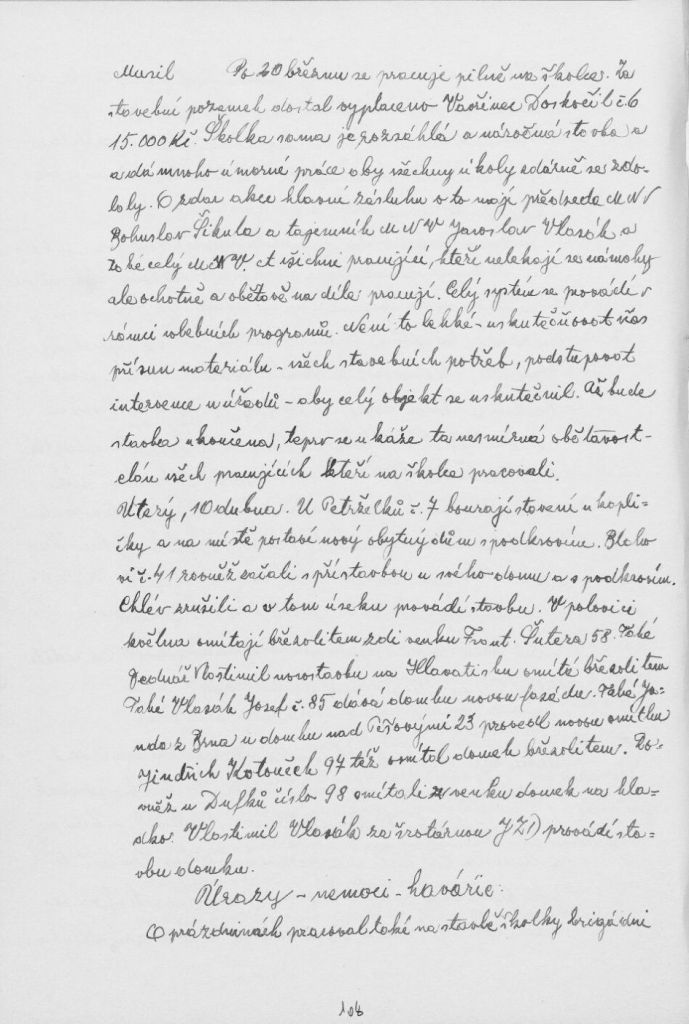 Musil Po 20 březnu se pracuje pilně na školce. Za
stavební pozemek dostal vyplaceno Vavřinec Doskočil č. 6
15.000 Kč. Školka sama je rozsáhlá a náročná stavba a
a dá mnoho úmorné práce aby všechny úkoly zdárně se zdo-
laly. O zdar akce hlavní zásluhu o to mají předseda MNV
Bohuslav Šikula a tajemník MNV Jaroslav Vlasák a
také celý MNV. A všichni pracující, kteří nelekají se námahy
ale ochotně a obětavě na díle pracují. Celý systém se provádí v
rámci volebních programů. Není to lehké - uskutečňovat včas
přísun materiálu - všech stavebních potřeb, podstupovat
intervence u úřadů - aby celý objekt se uskutečnil. Až bude
stavba ukončena, teprv se ukáže ta nesmírná obětavost -
elán všech pracujících kteří na školce pracovali.
Úterý, 10 dubna. U Petrželků č. 7 bourají stavení u kapli-
čky a na místě postaví nový obytný dům s podkrovím. Blaho
vi č. 41 rovněž začali s přístavbou u svého domu a s podkrovím.
Chlév zrušili a v tom úseku provádí stavbu. V polovici
května omítají březolitem zdi venku Frant. Šutera 58. Také
Jednář Vlastimil novostavbu na Hlavatisku omítá březolitem
Také Vlasák Josef č. 85 dává domku novou fasádu. Také Ja-
nda z Brna u domku nad Peřovými 23 provedl novou omítku
Jindřich Kotouček 97 též omítal domek březolitem. Ro-
vněž u Dufků číslo 98 omítali venku domek na hla-
dko. Vlastimil Vlasák za šrotárnou JZD provádí sta-
vbu domku.
Úrazy - nemoci - havárie.
O prázdninách pracoval také na stavbě školky brigádni
108